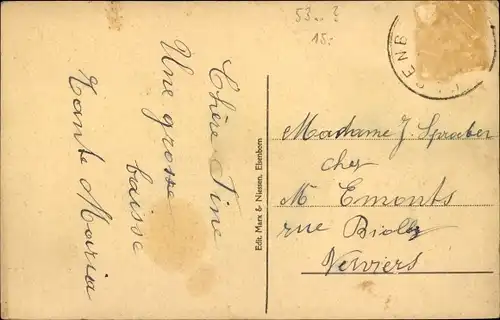 53..?
15.-
Chère Tine
Une grosse
baisse
Tante Maria
Edit. Marx & Niessen, Elsenborn
SENB
Madame J. Spraber
chez
Mr Emonts
rue Biolley
Verviers